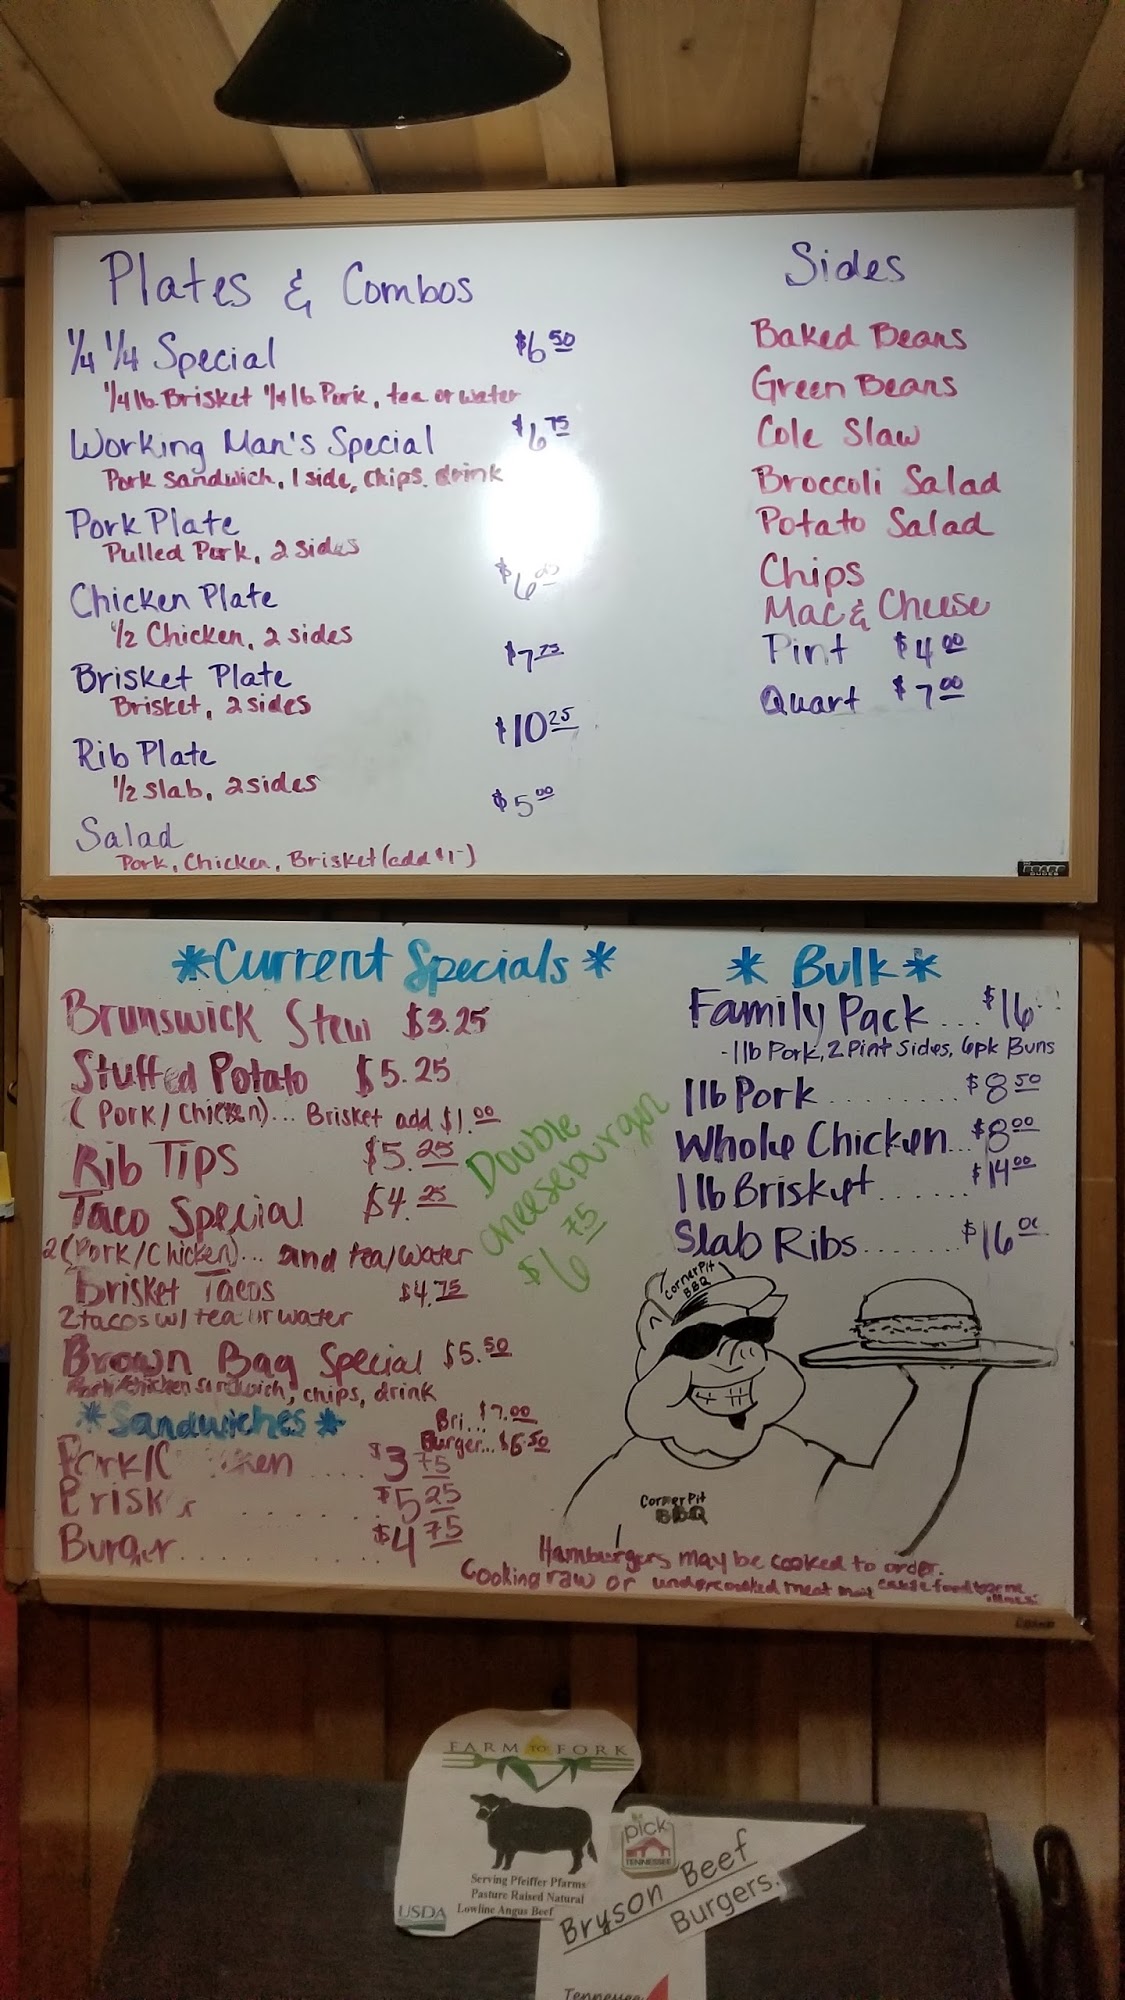 Plates & Combos
1/4 1/4 Special $6 50
1/4 lb. Brisket 1/4 lb Pork, tea or water
Working Man's Special $6 75
Pork sandwich, 1 side, chips. drink
Pork Plate
Pulled Pork, 2 sides
$6
Chicken Plate
1/2 Chicken, 2 sides
$7 75
Brisket Plate
Brisket, 2 sides
$10 25
Rib Plate
1/2 slab, 2 sides
$5 00
Salad
Pork, Chicken, Brisket (add $1-)
Sides
Baked Beans
Green Beans
Cole Slaw
Broccoli Salad
Potato Salad
Chips
Mac & Cheese
Pint $4 00
Quart $7 00
*Current Specials*
Brunswick Stew $3.25
Stuffed Potato $5.25
(Pork/Chicken)... Brisket add $1.00
Rib Tips $5.25
Taco Special $4.25
2 (Pork/Chicken)... and tea/water
Brisket Tacos $4.75
2 tacos w/ tea or water
Brown Bag Special $5.50
Pork/Chicken sandwich, chips, drink
Bri... $7.00
Burger... $6.50
*Sandwiches*
Pork/C ken .... $3 75
Brisk ........ $5 25
Burger........ $4 75
Double
Cheeseburger
$6 75
* Bulk *
Family Pack ... $16
-1lb Pork, 2 Pint Sides, 6pk Buns
1lb Pork ........ $8 50
Whole Chicken... $8 00
1lb Brisket....... $14 00
Slab Ribs....... $16
Corner Pit
BBQ
Corner Pit
BBQ
Hamburgers may be cooked to order.
Cooking raw or undercooked meat may cause foodborne
illness
FARM TO FORK
Serving Pfeiffer Pfarms
Pasture Raised Natural
Lowline Angus Beef
USDA
pick
TENNESSEE
Bryson Beef
Burgers.
Tennessee